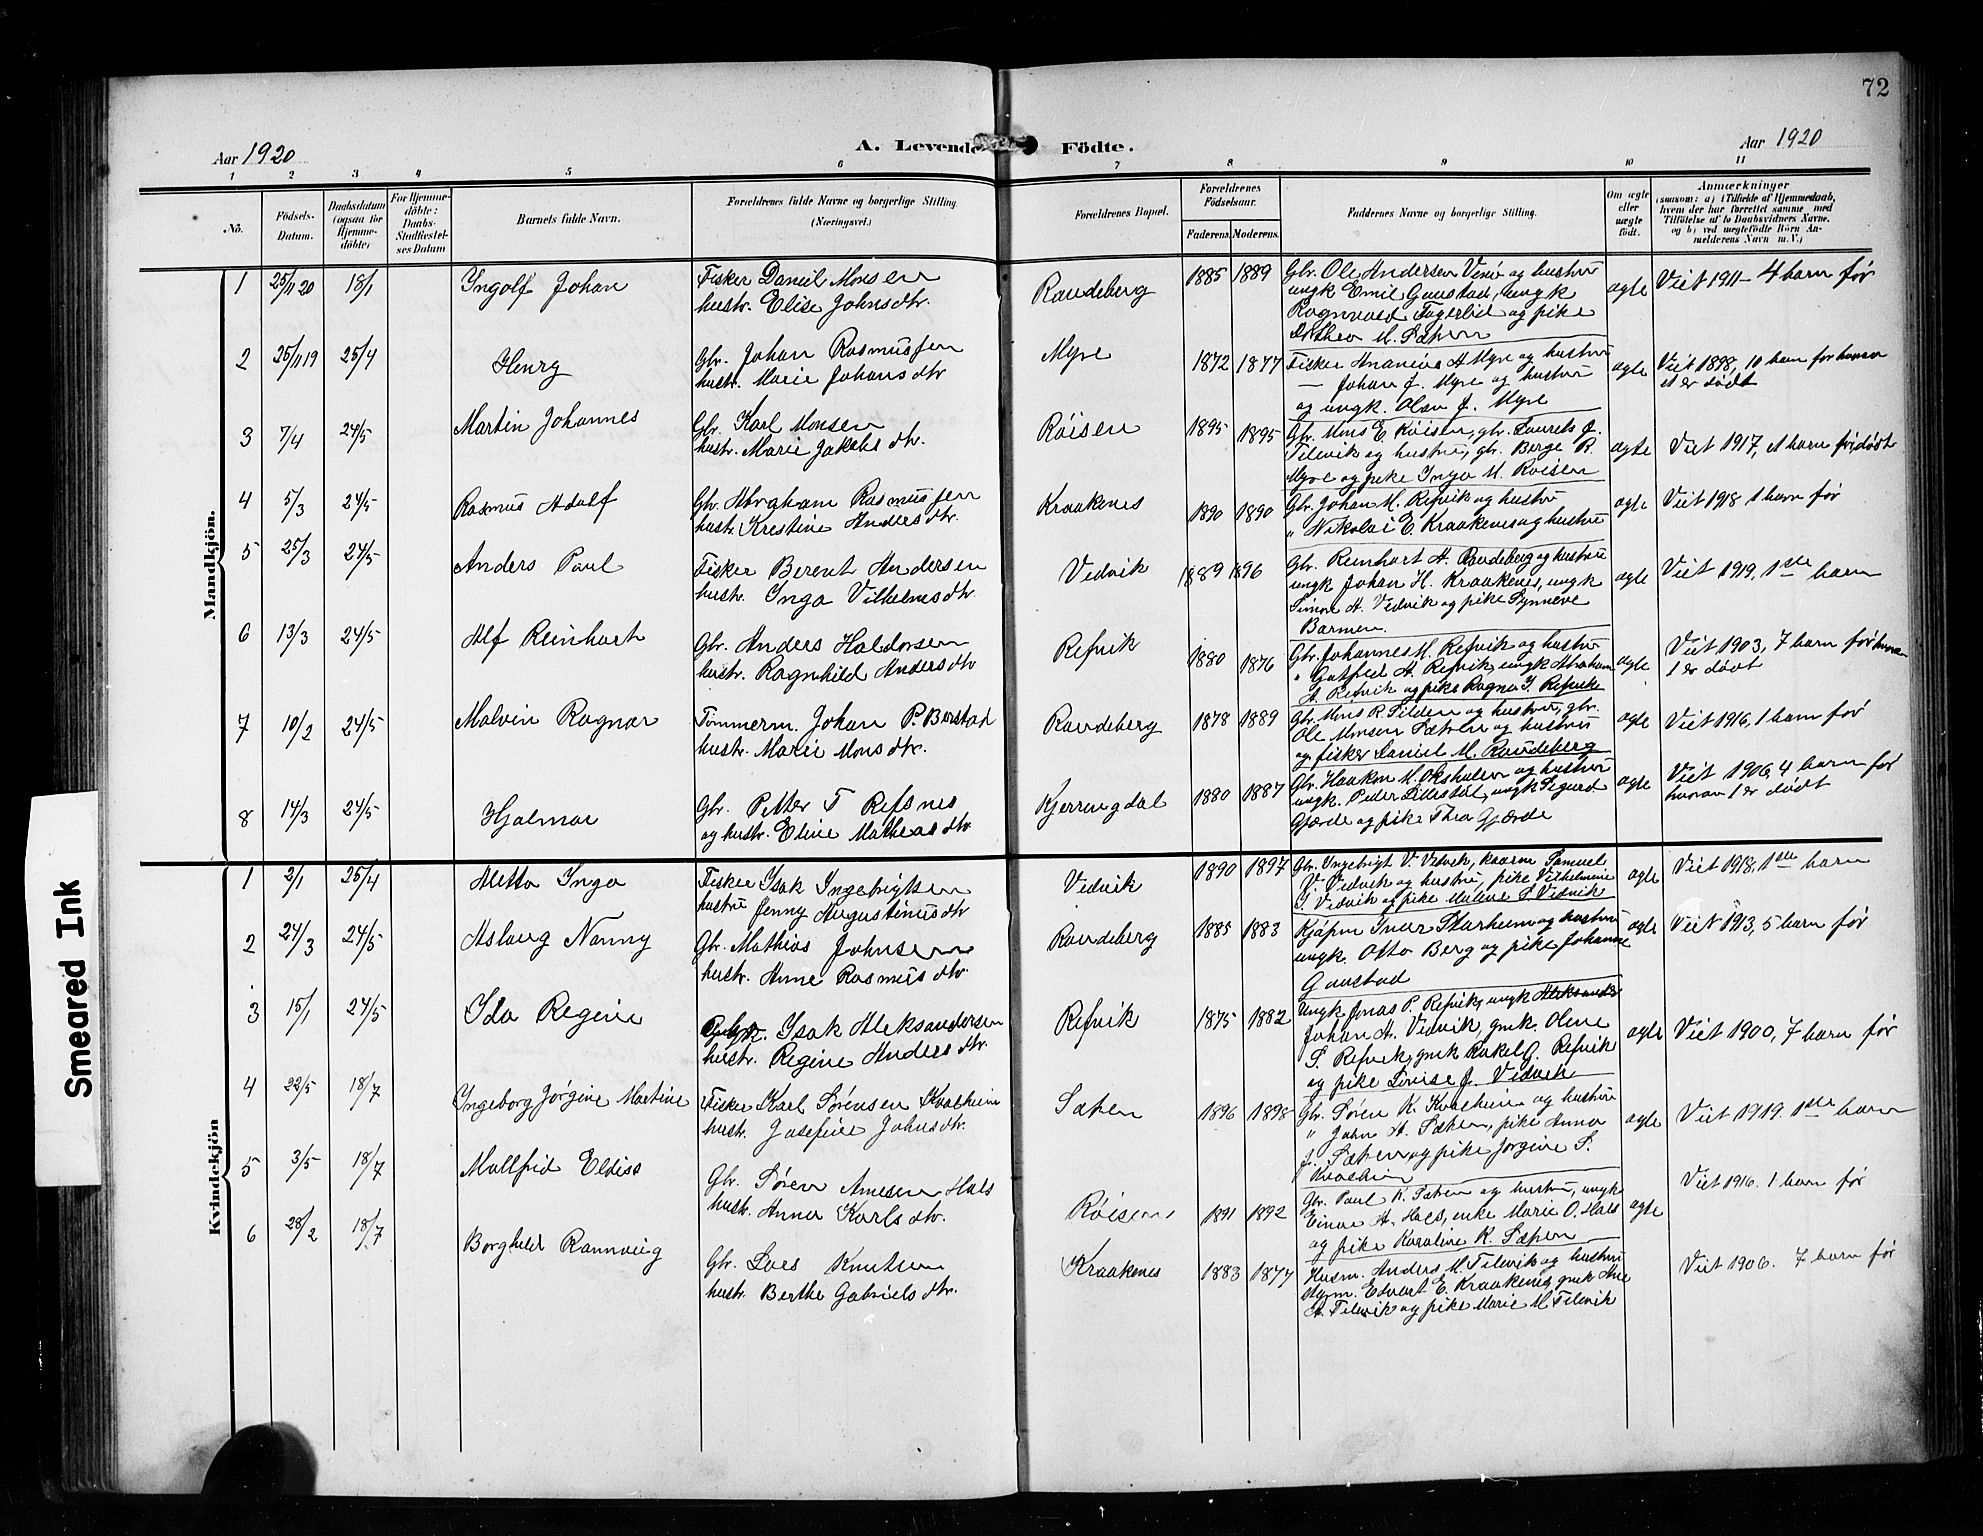 72
Aar 1920
A. Levende Födte.
Aar 1920
1 2 3 4 5 6 7 8 9 10 11
No.
Födsels-Datum.
Daabsdatum (ogsaa for Hjemme-döbte)
For Hjemme-döbte: Daabs-Stadfæstelses Datum
Barnets fulde Navn.
Forældrenes fulde Navne og borgerlige Stilling. (Næringsvei.)
Forældrenes Bopæl.
Forældrenes Födselsaar.
Faderens. Moderens.
Faddernes Navne og borgerlige Stilling.
Om ægte eller uægte födt.
Anmærkninger
(saasom: a) i Tilfælde af Hjemmedaab,
hvem der har forrettet samme med
Tilföielse af to Daabsvidners Navne.
og b) ved uægtefödte Börn An-
melderens Navn m. V.)
Mandkjön.
1 25/11 20 18/1 Ingolf Johan
Fisker Daniel Monsen
hustr. Elise Johnsdtr.
Raudeberg 1885 1889
Gbr. Ole Andersen Veiö og hustru
ungk Emil Gaustad, ungk
Ragnvald Fagerlid og pike
Dorthea M. Sæten
ægte Viet 1911 - 4 barn før
2 25/11 19 25/4 Henry
Gbr. Johan Rasmussen
hustr. Marie Johansdtr
Myre 1872 1877
Fisker Ananias A Myre og hustru
— Johan J. Myre og hustru
og ungk. Olav J. Myre
ægte Viet 1898, 10 barn før hvorav
et er dødt
3 7/4 24/5 Martin Johannes
Gbr. Karl Monsen
hustr. Marie Jakobsdtr.
Røisen 1895 1895
Gbr. Mons E. Røisen, gbr. Laurits J.
Tilevik og hustru, gbr. Berge R.
Myre og pike Inga M. Røisen
ægte Viet 1917, et barn før, dødt
4 5/3 24/5 Rasmus Adolf
Gbr. Abraham Rasmussen
hustr. Kristine Andersdtr.
Kraakenes 1890 1890
Gbr. Johan M. Refvik og hustru
" Nikolai E. Kraakenes og hustru
ægte Viet 1918 1 barn før
5 25/3 24/5 Anders Paul
Fisker Berent Andersen
hustr. Inga Vilhelmsdtr
Vedvik 1889 1896
Gbr. Reinhart A. Raudeberg og hustru
ungk Johan H. Kraakenes, ungk
Simon A. Vedvik og pike Synneve
Barmen.
ægte Viet 1919, 1ste barn
6 13/3 24/5 Alf Reinhart
Gbr. Anders Haldorsen
hustr. Ragnhild Andersdtr
Refvik 1880 1876
Gbr. Johannes M. Refvik og hustru
" Gotfred A. Refvik, ungk Abraham
A. Refvik og pike Ragna J. Refvik
ægte Viet 1903, 7 barn før hvorav
1 er dødt
7 10/2 24/5 Malvin Ragnar
Tømmerm. Johan P. Barstad
hustr. Marie Monsdtr.
Raudeberg 1878 1889
Gbr. Mons R. Silden og hustru, gbr.
Ole Monsen Sæten og hustru
og fisker Daniel M. Raudeberg
ægte Viet 1916, 1 barn før
8 14/3 24/5 Hjalmar
Gbr. Petter T Refsnes
og hustr. Eline Mathiasdtr
Kjerringdal 1880 1887
Gbr. Haakon M. Oksholen og hustru
ungk. Peder Lillestøl, ungk Sigurd
Gjærde og pike Thea Gjærde
ægte Viet 1906, 4 barn før
hvorav 1 er dødt
Kvindekjön
1 2/1 25/4 Metta Inga
Fisker Isak Ingebrigtsen
hustru Jenny Augustinusdtr
Vedvik 1890 1897
Gbr. Ingebrigt V. Vedvik, kaarm Samuel
V. Vedvik og hustru, pike Vilhelmine
I. Vedvik og pike Malene S. Vedvik
ægte Viet 1918, 1ste barn
2 24/3 24/5 Aslaug Nanny
Gbr. Mathias Johnsen
hustr. Anne Rasmusdtr.
Raudeberg 1885 1883
Kjøpm Ivar Starheim og hustru
ungk. Otto Berg og pike Johanne
Gaustad
ægte Viet 1913, 5 barn før
3 15/1 24/5 Ida Regine
Isak Aleksandersen
hustr. Regine Andersdtr.
Refvik 1875 1882
Ungk Jonas P. Refvik, ungk Aleksander
Johan A. Vedvik, gmk. Oline
S. Refvik, gmk Rakel O. Refvik
og pike Lovise J. Vedvik
ægte Viet 1900, 7 barn før
4 22/5 18/7 Ingeborg Jørgine Martine
Fisker Karl Sørensen Kvalheim
hustr. Josefine Johnsdtr.
Sæten 1896 1898
Gbr. Søren K. Kvalheim og hustru
" John A. Sæten, pike Anna
J. Sæten og pike Jørgine S.
Kvalheim
ægte Viet 1919. 1ste barn
5 3/5 18/7 Malfrid Eldise
Gbr. Søren Arnesen Hals
hustr. Anna Karlsdtr.
Røisen 1891 1892
Gbr. Paul K. Sæten og hustru, ungk
Einar A. Hals, enke Marie O. Hals
og pike Karoline K. Sæten
ægte Viet 1916. 1 barn før
6 28/2 18/7 Borghild Rannveig
Gbr. Lars Knutsen
hustr. Berthe Gabrielsdtr.
Kraakenes 1883 1877
Husm. Anders M. Tilevik og hustru
Edvart E. Kraakenes, gmk Ane
A. Tilevik og pike Marie M. Tilevik
Viet 1906. 7 barn før
Smeared Ink